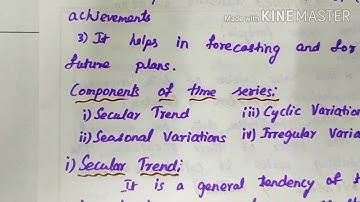 achievements
Made with KINEMASTER
3) It helps in forecasting and for
future plans.
Components of time series:
i) Secular Trend iii) Cyclic Variation
ii) Seasonal Variations iv) Irregular Varia
i) Secular Trend:
It is a general tendency of t